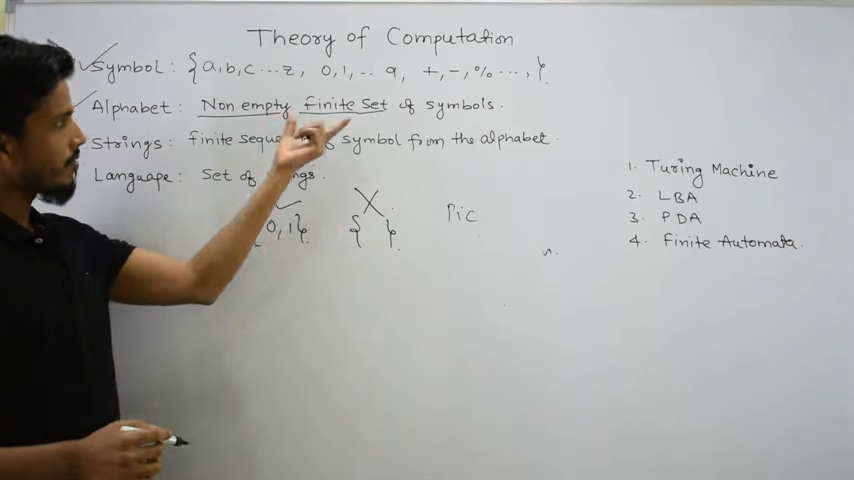 Theory of Computation
Symbol : { a, b, c ... z, 0, 1, .. 9, +, -, % ..., }.
Alphabet : Non empty finite set of symbols.
Strings : finite symbol from the alphabet.
Language : Set of
0, 1}. X { }. Pic
n.
1. Turing Machine
2. LBA
3. PDA
4. Finite Automata.